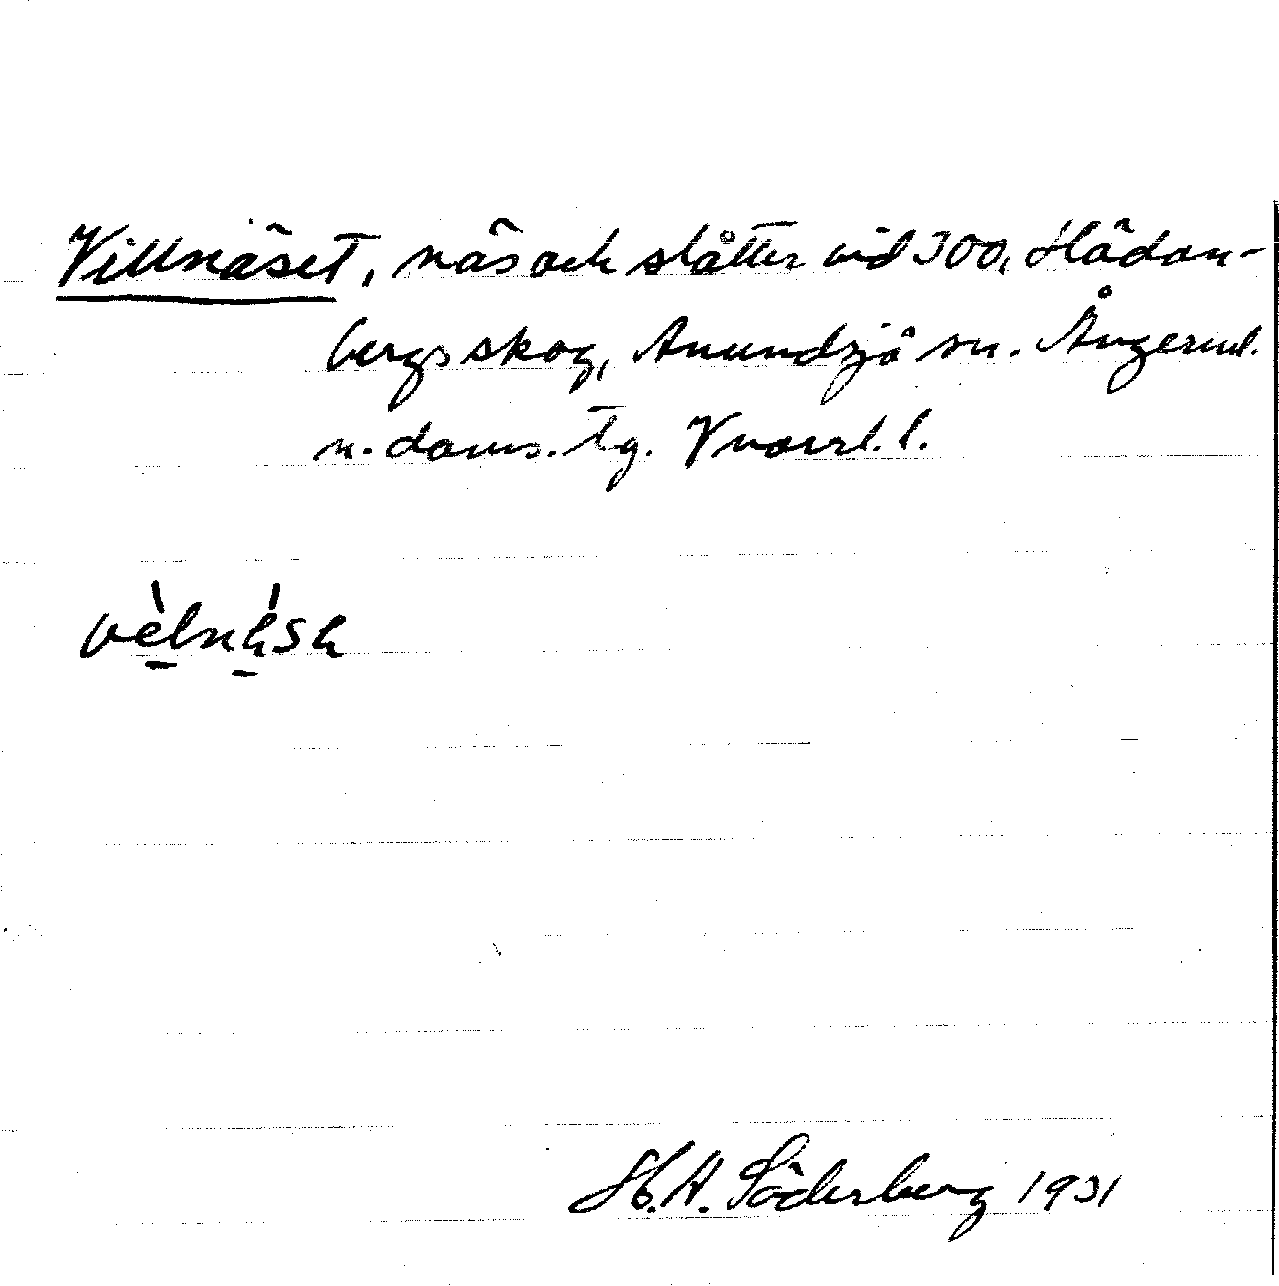 Villnäset, näs och slåtter vid 300, Hädan-
bergs skog, Anundsjö sn. Ångerml.
n. doms. tg. Vnorrl. l.
H. A. Söderberg 1931